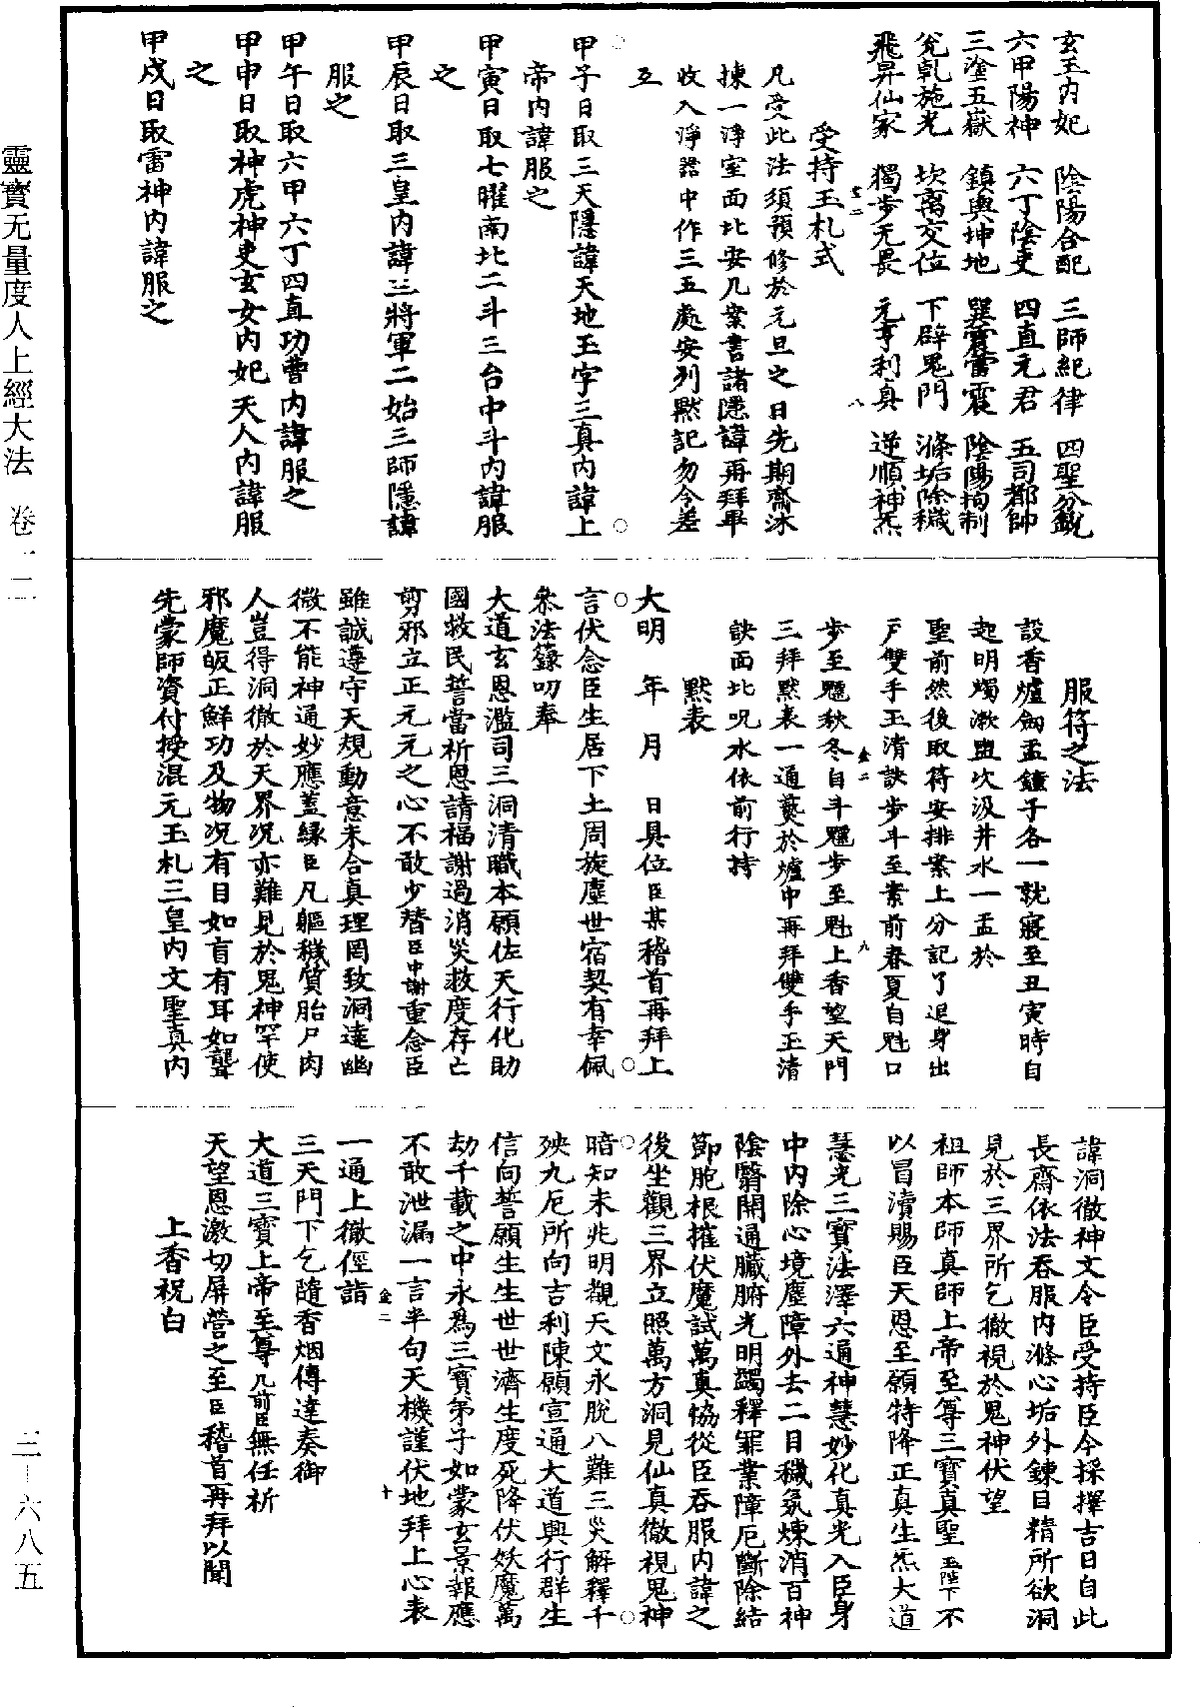 玄玉內妃　陰陽合配　三師紀律　四聖分銳
六甲陽神　六丁陰吏　四直元君　五司都帥
三塗五嶽　鎮輿坤地　巽震雷震　陰陽拘制
兊乾施光　坎离交位　下辟鬼門　滌垢除穢
飛昇仙家　獨步无畏　元亨利真　逆順神炁
受持玉札式
凡受此法須預修於元旦之日先期齋沐
揀一淨室面北安几案書諸隱諱再拜畢
收入淨器中作三五處安列默記勿令差
互
甲子日取三天隱諱天地玉字三真內諱上
帝內諱服之
甲寅日取七曜南北二斗三台中斗內諱服
之
甲辰日取三皇內諱三將軍二始三師隱諱
服之
甲午日取六甲六丁四直功曹內諱服之
甲申日取神虎神吏玄女內妃天人內諱服
之
甲戌日取雷神內諱服之
服符之法
設香爐劒盂鐘子各一就寢至丑寅時自
起明燭漱盥次汲井水一盂於
聖前然後取符安排案上分記了退身出
戶雙手玉清訣步斗至案前春夏自魁口
步至魒秋冬自斗魒步至魁上香望天門
三拜默表一通爇於爐中再拜雙手玉清
訣面北呪水依前行持
默表
大明　年　月　日具位臣某稽首再拜上
言伏念臣生居下土周旋塵世宿契有幸佩
叅法籙叨奉
大道玄恩濫司三洞清職本願佐天行化助
國救民誓當祈恩請福謝過消災救度存亡
剪邪立正元元之心不敢少替臣中謝重念臣
雖誠遵守天規動意未合真理罔致洞達幽
微不能神通妙應蓋緣臣凡軀穢質胎尸肉
人豈得洞徹於天界况亦難見於鬼神罕使
邪魔皈正鮮功及物况有目如盲有耳如聾
先蒙師資付授混元玉札三皇內文聖真內
諱洞徹神文令臣受持臣今採擇吉日自此
長齋依法吞服內滌心垢外鍊目精所欲洞
見於三界所乞徹視於鬼神伏望
祖師本師真師上帝至尊三寶真聖玉陛下不
以冒瀆賜臣天恩至願特降正真生炁大道
慧光三寶法澤六通神慧妙化真光入臣身
中內除心境塵障外去二目穢氛煉消百神
陰翳開通臟腑光明蠲釋罪業障厄斷除結
節胞根摧伏魔試萬真協從臣吞服內諱之
後坐觀三界立照萬方洞見仙真徹視鬼神
暗知未兆明觀天文永脫八難三災解釋千
殃九厄所向吉利陳願宣通大道興行群生
信向誓願生生世世濟生度死降伏妖魔萬
劫千載之中永爲三寶弟子如蒙玄景報應
不敢泄漏一言半句天機謹伏地拜上心表
一通上徹俓詣
三天門下乞隨香烟傳達奏御
大道三寶上帝至尊几前臣無任祈
天望恩激切屏營之至臣稽首再拜以聞
上香祝白
靈寶无量度人上經大法　卷一二
三—六八五